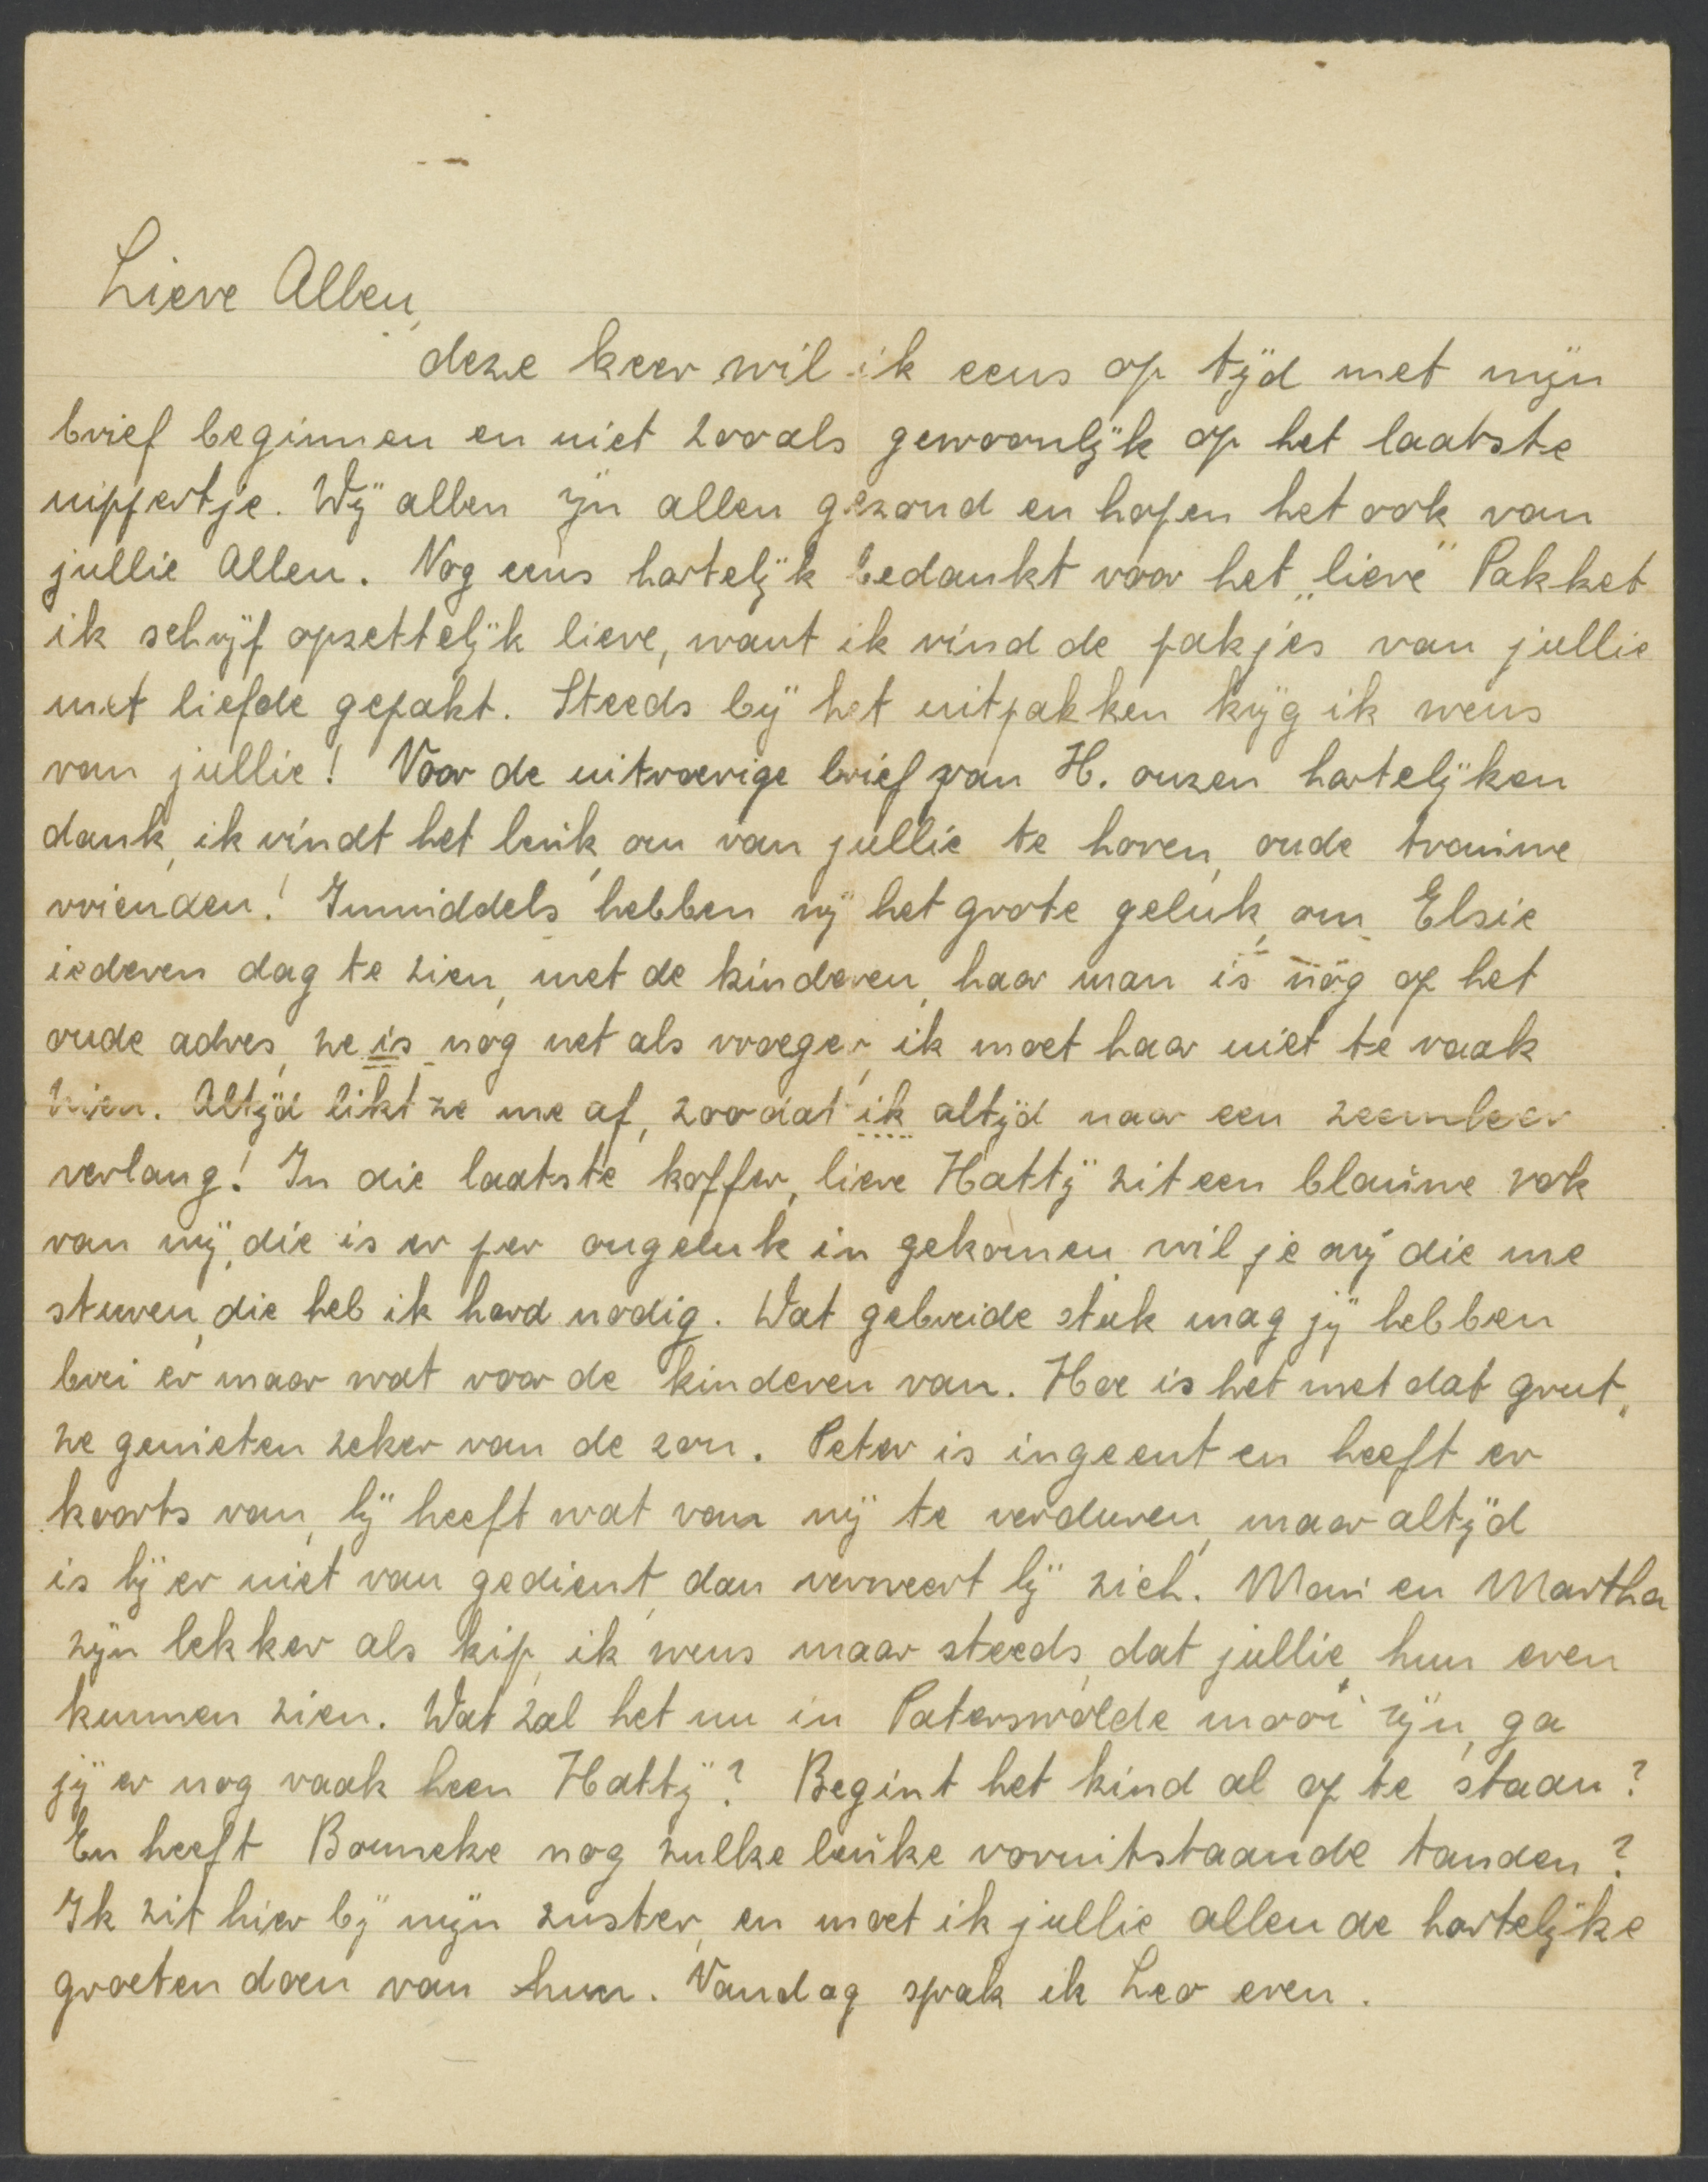 Lieve Allen,
deze keer wil ik eens op tijd met mijn
brief beginnen en niet zooals gewoonlijk op het laatste
nippertje. Wij allen zijn allen gezond en hopen het ook van
jullie Allen. Nog eens hartelijk bedankt voor het „lieve" Pakket
ik schrijf opzettelijk lieve, want ik vind de pakjes van jullie
met liefde gepakt. Steeds bij het uitpakken krijg ik wens
van jullie! Voor de uitvoerige brief van H. onzen hartelijken
dank, ik vindt het leuk, om van jullie te horen, oude trouwe
vrienden! Inmiddels hebben wij het grote geluk, om Elsie
iederen dag te zien, met de kinderen, haar man is nog op het
oude adres, ze is nog net als vroeger, ik moet haar niet te vaak
zien. Altijd likt ze me af, zoodat ik altijd naar een zeemleer
verlang! In die laatste koffer, lieve Hattÿ zit een blauwe rok
van mij, die is er per ongeluk in gekomen wil je mij die me
sturen, die heb ik hard nodig. Wat gebreide stuk mag jij hebben
brei er maar wat voor de kinderen van. Hoe is het met dat grut,
ze genieten zeker van de zon. Peter is ingeent en heeft er
koorts van, hij heeft wat van mij te verduren, maar altijd
is hij er niet van gedient, dan verweert hij zich. Mani en Martha
zijn lekker als kip, ik wens maar steeds, dat jullie hun even
kunnen zien. Wat zal het nu in Paterswolde mooi zijn, ga
jij er nog vaak heen Hattÿ? Begint het kind al op te staan?
En heeft Bouneke nog zulke leuke vooruitstaande tanden?
Ik zit hier bij mijn zuster, en moet ik jullie allen de hartelijke
groeten doen van hun. Vandag sprak ik Leo even.